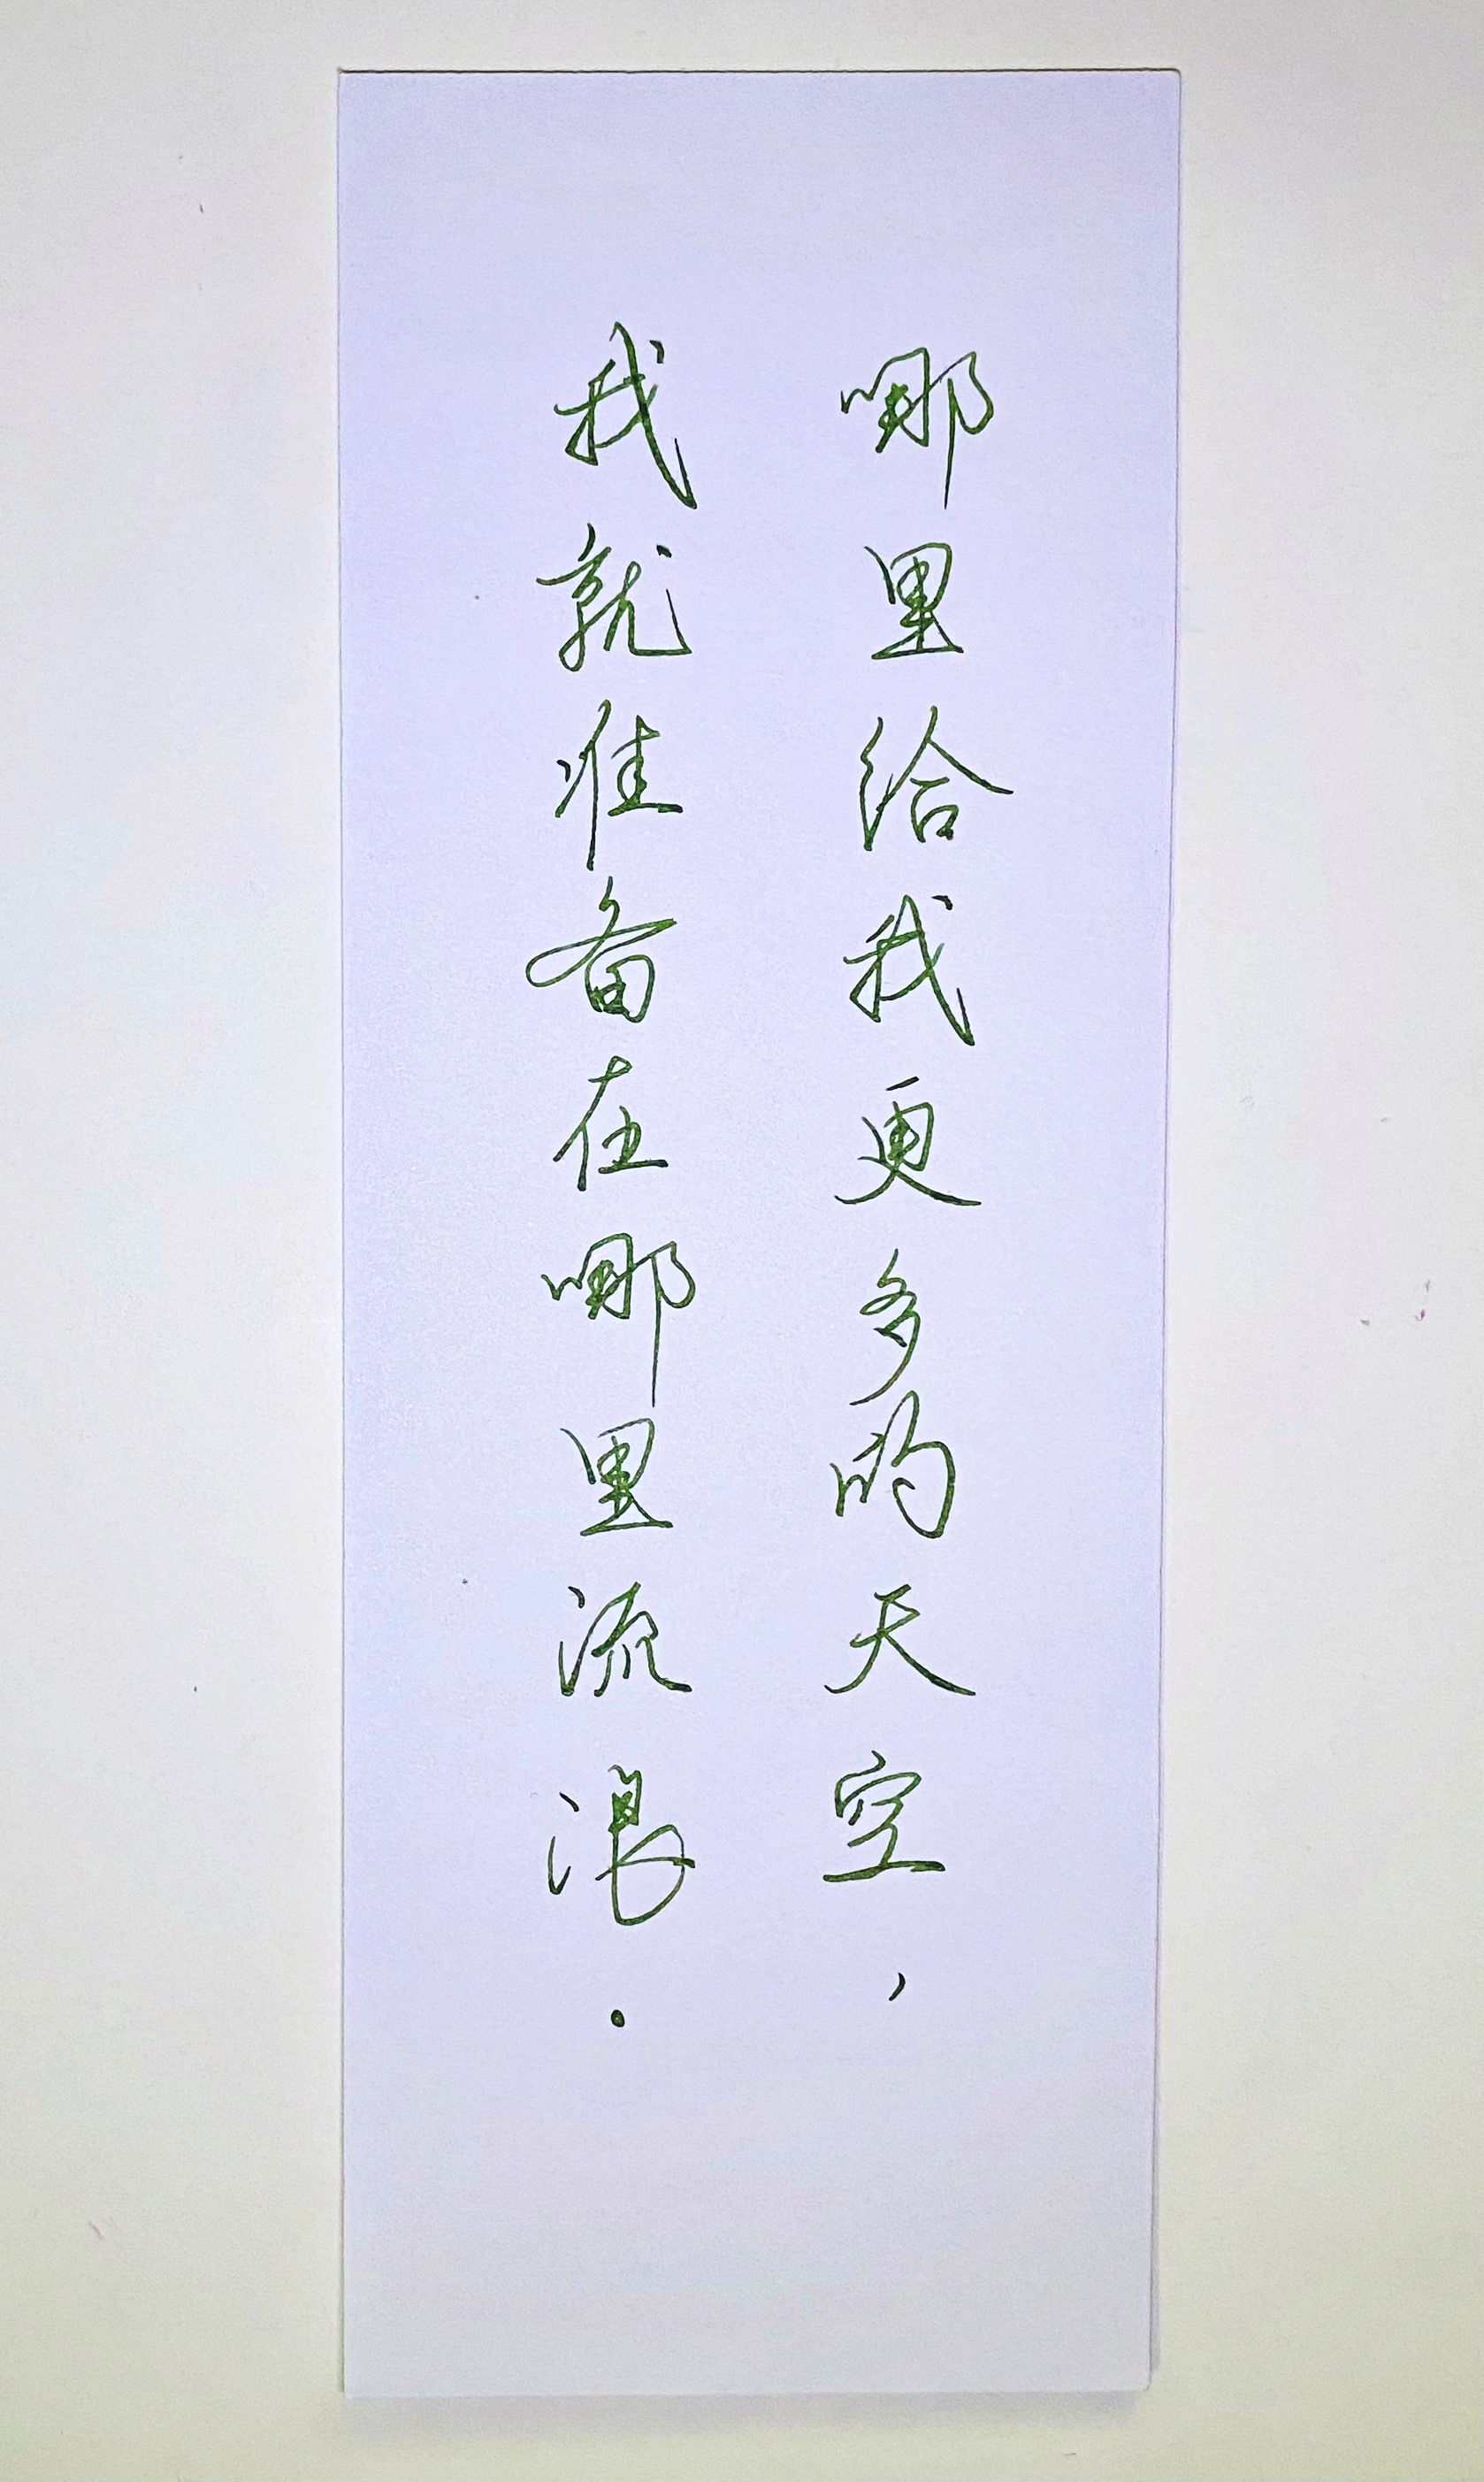 哪里给我更多的天空，
我就准备在哪里流浪.